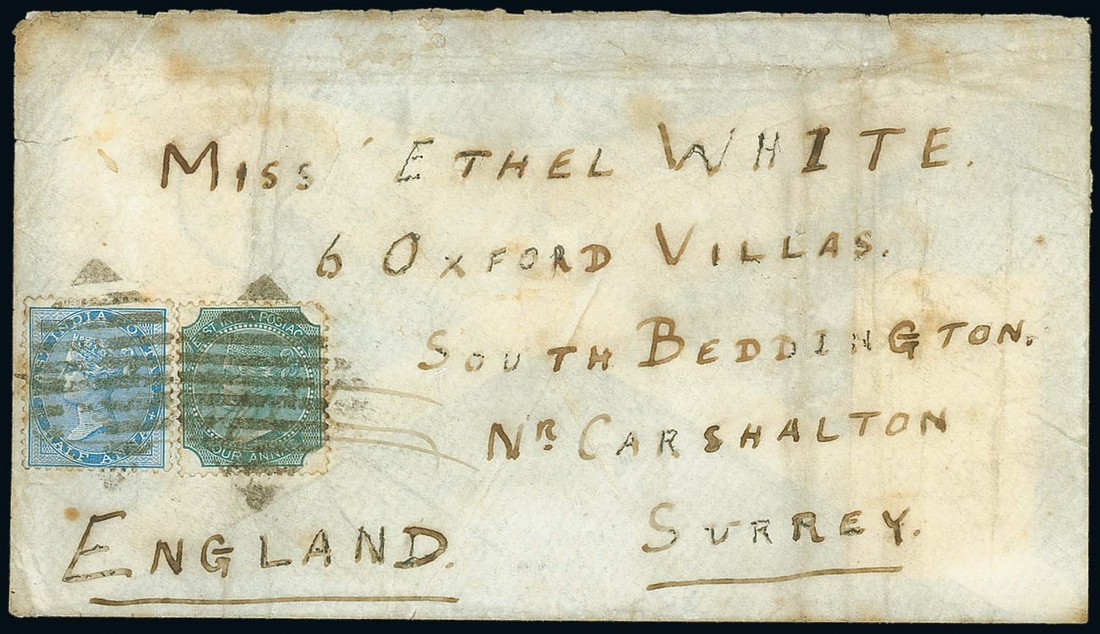 MISS ETHEL WHITE.
6 OXFORD VILLAS.
SOUTH BEDDINGTON.
NR. CARSHALTON
SURREY.
ENGLAND.
INDIA
HALF ANNA
ST INDIA POSTAG
OUR ANN